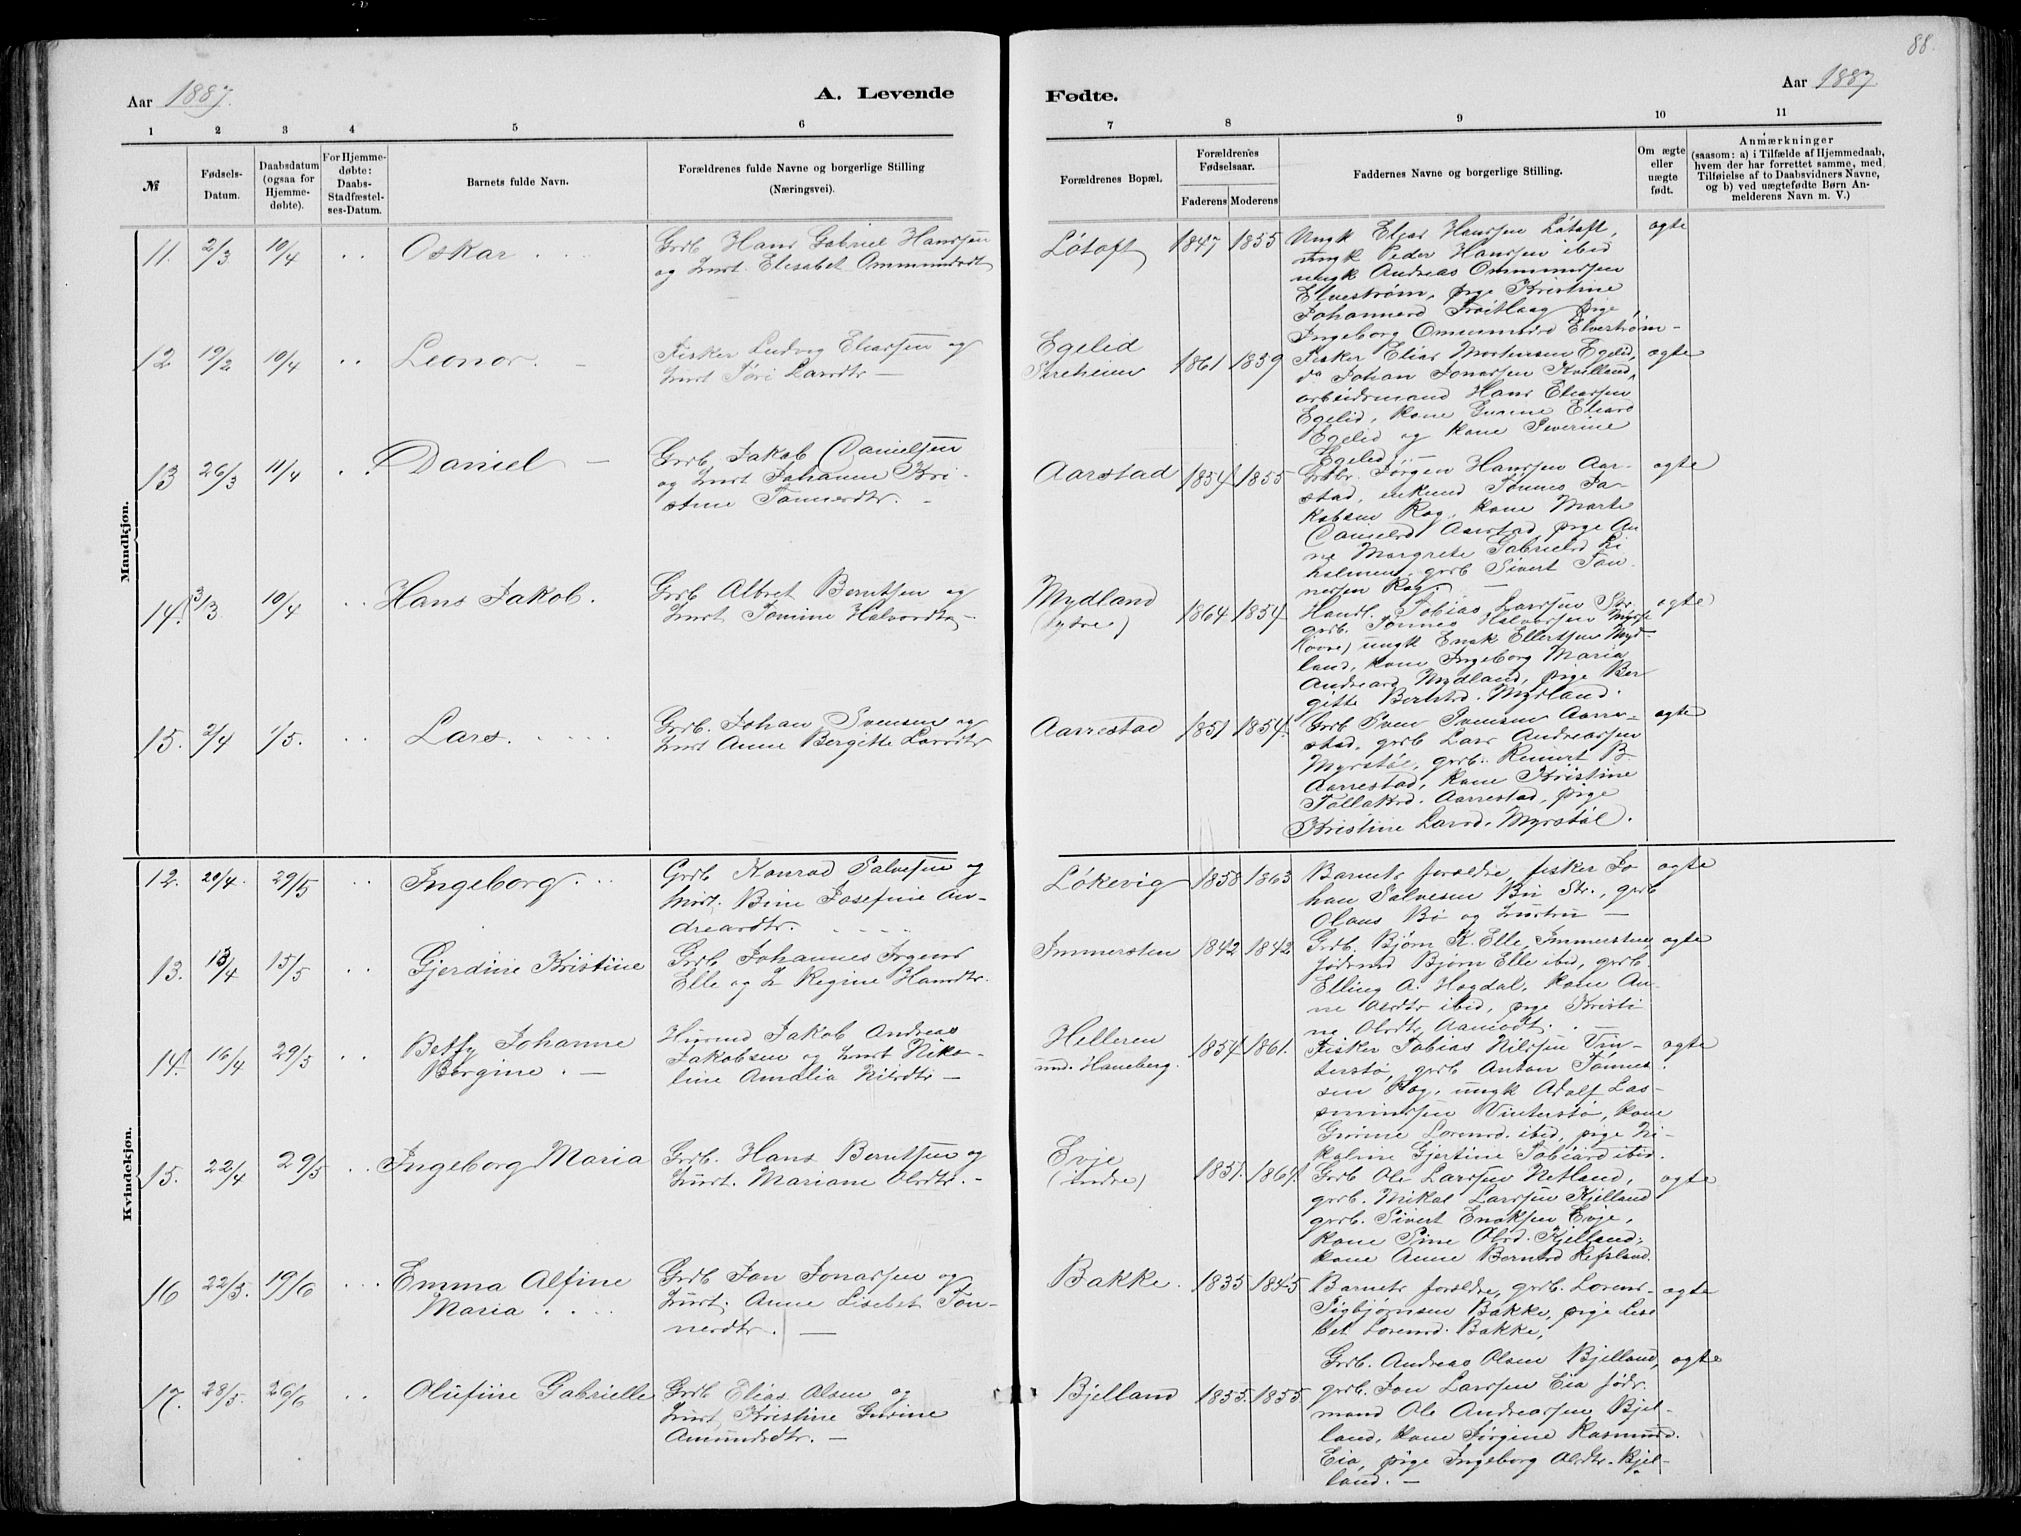 88.
Aar 1887.
A. Levende Fødte.
Aar 1887
1 2 3 4 5 6 7 8 9 10 11
№
Fødsels-
Datum.
Daabsdatum
(ogsaa for
Hjemme-
døbte).
For Hjemme-
døbte:
Daabs-
Stadfæstel-
ses-Datum.
Barnets fulde Navn.
Forældrenes fulde Navne og borgerlige Stilling
(Næringsvei).
Forældrenes Bopæl.
Forældrenes
Fødselsaar.
Faderens
Moderens
Faddernes Navne og borgerlige Stilling.
Om ægte
eller
uægte
født.
Anmærkninger
(saasom: a) i Tilfælde af Hjemmedaab,
hvem der har forrettet samme, med
Tilføielse af to Daabsvidners Navne,
og b) ved uægtefødte Børn An-
melderens Navn m. V.)
Mandkjøn.
11. 2/3 10/4 Oskar
Grdb Hans Gabriel Hanssen
og Hust. Elisabet Ommundsdt
Løtoft 1847 1855
Ungk Elias Hanssen Løtoft,
ungk Peder Hanssen ibid
ungk Andreas Ommunssen
Elvestrøm, pige Kristine
Johannesd pige
Ingeborg Ommundsd Elvestrøm -
ægte
12 19/2 10/4 Leonor. -
Fisker Ludvig Eliassen og
Hust Tori Larsdtr -
Egelid
Sireheien 1861 1859
Fisker Elias Mortensen Egelid,
do Johan Jonassen Kvelland,
arbeidsmand Hans Eliassen
Egelid, kone Gurine Eliasd
Egelid og kone Severine
Egelid. -
ægte
13 26/3 11/4 Daniel -
Grdb. Jakob Danielsen
og Hust Johanne Kri-
stine Tønnesdtr. -
Aarstad 1854 1855
Grdbr. Jørgen Hanssen Aar-
stad, enkemd Tønnes Ja-
kobsen Rog, kone Marte
Danielsd Aarstad, pige An-
ne Margrete Gabrielsd Li
holmen, grdb Sivert Tøn
nesen Rog. -
ægte
14. 3/13 10/4 Hans Jakob.
Grdb Albret Berntsen og
Hust. Tomine Halvorsdtr -
Mydland
(ydre) 1864 1854
Handl. Tobias Larssen Str.
grdb. Tønnes Halvorsen
(øvre) ungk Enok Ellertsen Myd-
land, kone Ingeborg Maria
Andreasd Mydland, pige Ber
gitte Berntsd. Mydland.
ægte
15. 2/4 1/5. Lars.
Grdb. Johan Svensen og
Hust Anne Bergitte Larsdtr
Aarrestad 1851 1854.
Grdb Sven Svensen Aarre-
stad, grdb Lars Andreassen
Myrstøl, grdb. Reinert B.
Aarrestad, kone Kristine
Tollaksd. Aarrestad, pige
Kristine Larsd. Myrstøl.
ægte
Kvindekjøn.
12. 20/4. 29/5 Ingeborg.
Grdb Konrad Salvesen og
Hust. Bine Josefine An-
dreasdtr.
Løkevig 1858 1863
Barnets forældre, fisker Jo
han Salvesen Bø Str., grdb
Olaus Bø og hustru -
ægte
13. 13/4 15/5 Gjerdine Kristine
Grdb Johannes
Elle og H Regine Hansdtr.
Immersten 1842 1842
Grdb. Bjørn K. Elle, Immersten,
fødrmd Bjørn Elle ibid, grdb.
Elling A. Hogdal, kone An-
ne Olsdtr ibid, pige Kristi
ne Olsdtr Aamodt. -
ægte
14. 16/4 29/5 Betsy Johanne
Bergine. -
Husmd Jakob Andreas
Jakobsen og Hust Niko-
line Amalia Nilsdtr -
Helleren
und. Haneberg. 1854 1861.
Fisker Tobias Nilssen Vin-
terstø, grdb Anton Tønnes-
sen Rog, ungk Adolf Las-
mundsen Vinterstø, kone
Gurine Lorensd. ibid, pige Ni-
koline Gjertine Tobiasd ibid.
ægte
15. 22/4 29/5 Ingeborg Maria
Grdb. Hans Berntsen og
Hust. Mariane Olsdtr. -
Evje
(indre) 1851. 1861.
Grdb Ole Larssen Netland,
grdb. Mikal Larssen Kjelland
grdb. Sivert Enoksen Evje,
kone Sine Olsd. Kjelland,
kone Anne Berntsd Refsland.
ægte
16 22/5. 19/6 Emma Alfine
Maria.
Grdb Jon Jonassen og
Hust. Anne Lisebet Tøn-
nesdtr. -
Bakke. 1835 1845
Barnets forældre, grdb. Lorens
Sigbjørnsen Bakke, pige Lise
bet Lorensd. Bakke,
ægte
17. 28/5. 26/6 Olufine Gabrielle
Grdb Elias Olsen og
Hust. Kristine Gurine
Amundsdtr. -
Bjelland 1855. 1855.
Grdb. Andreas Olsen Bjelland,
grdb. Jon Larssen Eia fødr.
mand Ole Andreassen Bjel-
land, kone Jørgine Rasmusd.
Eia, pige Ingeborg Olsdtr. Bjel-
land. -
ægte